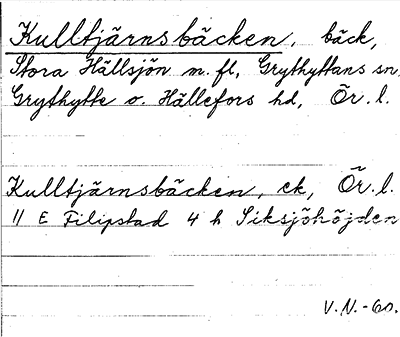 Kulltjärnsbäcken, bäck,
Stora Hällsjön m. fl, Grythyttans sn,
Grythytte o. Hällefors hd, Ör. l.
Kulltjärnsbäcken, ek, Ör. l.
11 E Filipstad 4 h Siksjöhöjden
V. N. -60.